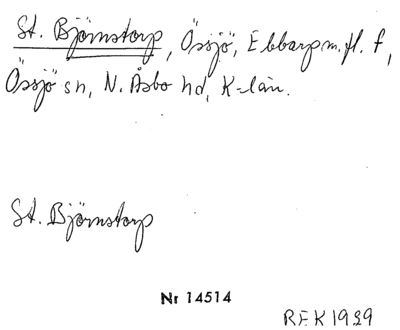 St. Björnstorp, Össjö, Ebbarp m. fl. f,
Össjö sn, N. Åsbo hd, K-län.
St. Björnstorp
Nr 14514
REK 1929